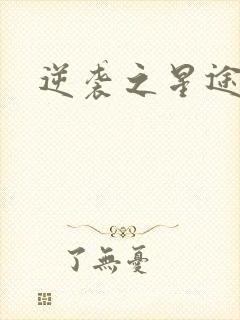 逆袭之星途
了無憂